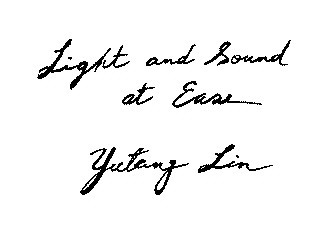 Light and Sound
at Ease
Yutang Lin